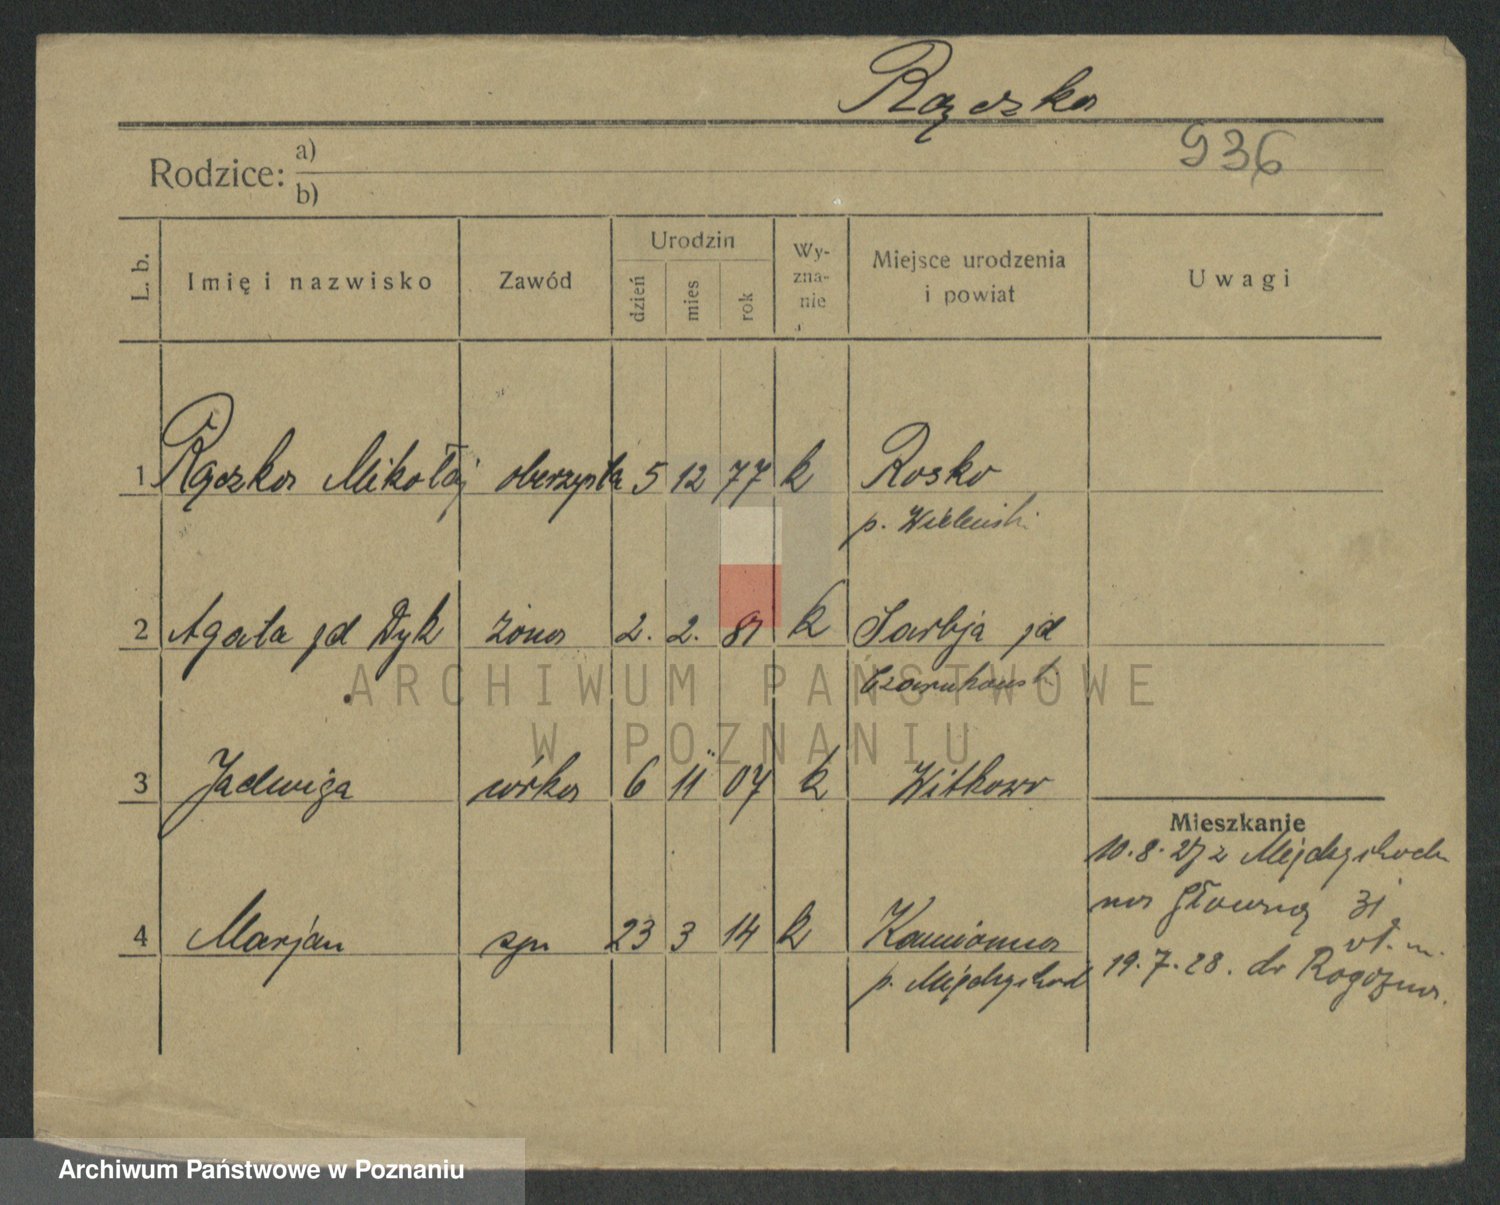 Rączka
936
Rodzice: a)
b)
L. b.
Imię i nazwisko
Zawód
Urodzin
dzień
mies
rok
Wy-
zna-
nie
Miejsce urodzenia
i powiat
Uwagi
1 Rączka Mikołaj oberzysta 5 12 77 k Rosko
p. Wieleński
2 Agata zd Dyk żona 2. 2. 81 k Sarbja zd
Czarnkowski
ARCHIWUM PAŃSTWOWE
W POZNANIU
3 Jadwiga córka 6 11 07 k Witkowo
Mieszkanie
10.8.27 z Międzychodu
na Główną 31
4 Marjan syn 23 3 14 k Kamionna
p. Międzychód
19.7.28. do Rogoźna.
Archiwum Państwowe w Poznaniu